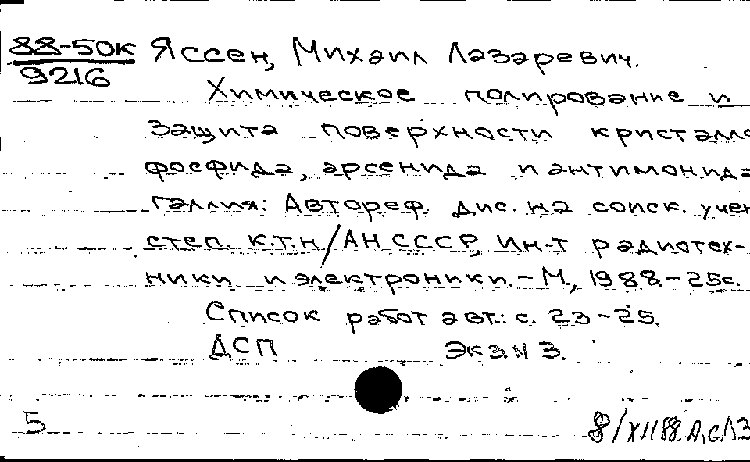 88-50к Яссен, Михаил Лазаревич.
9216
Химическое полирование и
защита поверхности кристалло
фосфида, арсенида и антимонида
галлия: Автореф. дис. на соиск. учен
степ. к.т.н/АН СССР, Ин-т радиотех-
ники и электроники. - М., 1988. - 25с.
Список работ авт.: с. 23-25.
ДСП Экз N 3.
5
8/XII 88